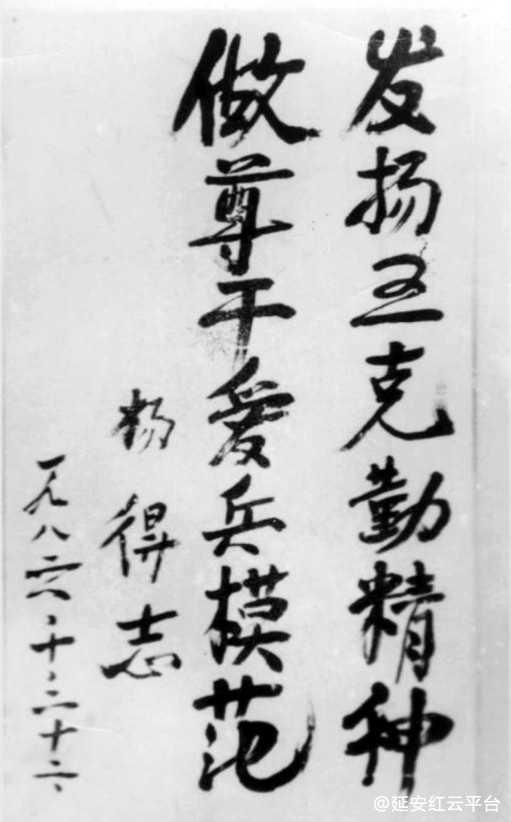 发扬王克勤精神
做尊干爱兵模范
杨得志
一九八六·十·二十
@延安红云平台